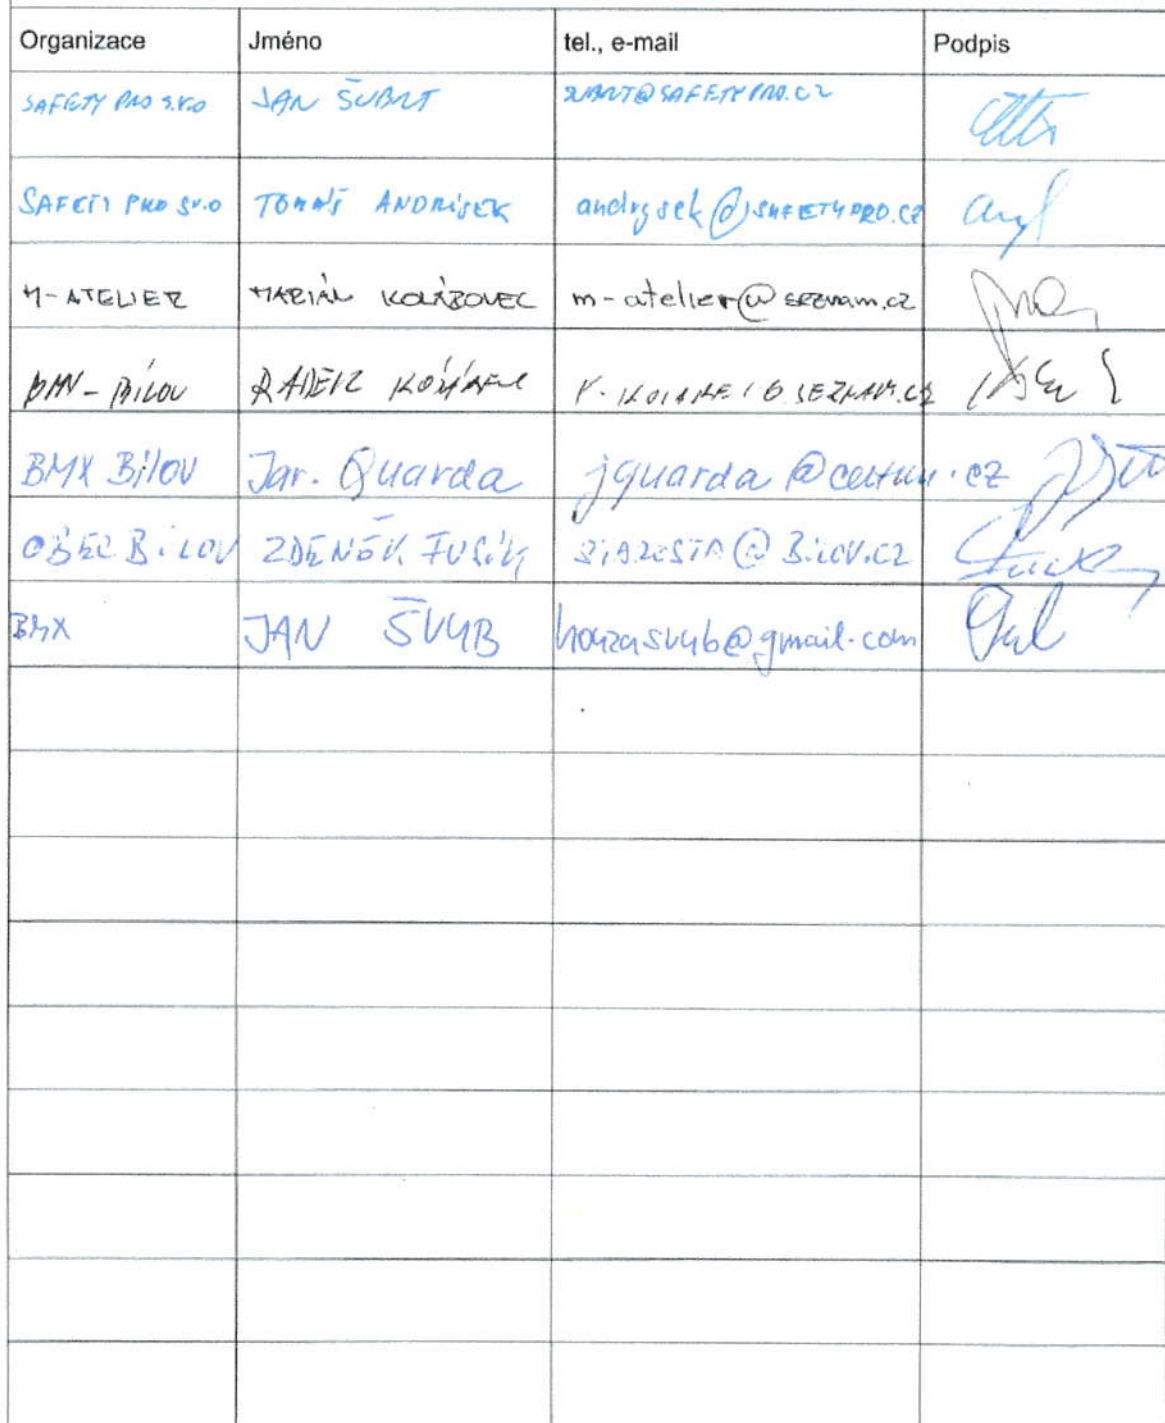 Organizace Jméno tel., e-mail Podpis
SAFETY PRO s.r.o JAN ŠUBRT SUBRT@SAFETYPRO.CZ
SAFETY PRO s.r.o TOMÁŠ ANDRÝSEK andrysek@SAFETYPRO.CZ
M-ATELIER MARIÁN KOLÁŘOVEC m-atelier@seznam.cz
BMX-BÍLOV RADEK
BMX Bílov Jar. Quarda jquarda@centrum.cz
OBEC BíLOV ZDENĚK FUSÍK STAROSTA@BiLOV.CZ
BMX JAN ŠVUB honzasvub@gmail.com